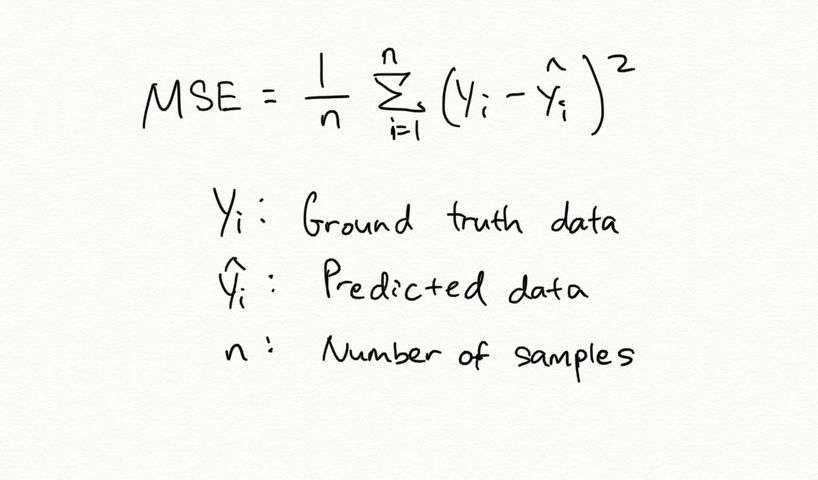 MSE = 1/n ∑_{i=1}^{n} (y_i - ŷ_i)^2
y_i : Ground truth data
ŷ_i : Predicted data
n : Number of samples